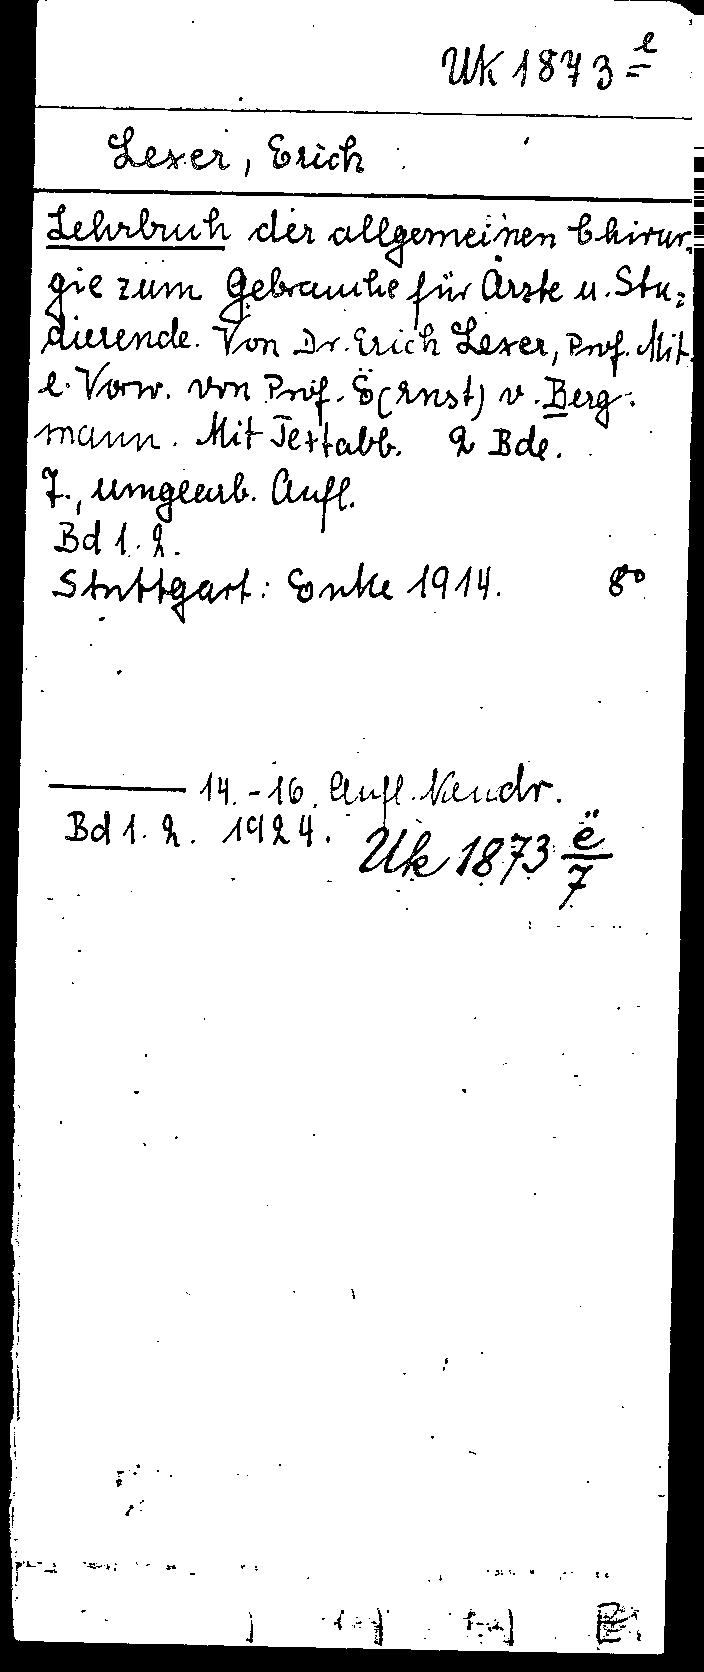 Uk 1873 e
Lexer, Erich
Lehrbuch der allgemeinen Chirur-
gie zum Gebrauche für Ärzte u. Stu-
dierende. Von Dr. Erich Lexer, Prof. Mit
e. Vorw. von Prof. E(rnst) v. Berg-
mann. Mit Textabb. 2 Bde.
7., umgearb. Aufl.
Bd 1. 2.
Stuttgart: Enke 1914. 8°
——— 14.-16. Aufl. Neudr.
Bd 1. 2. 1924. Uk 1873 ë/7